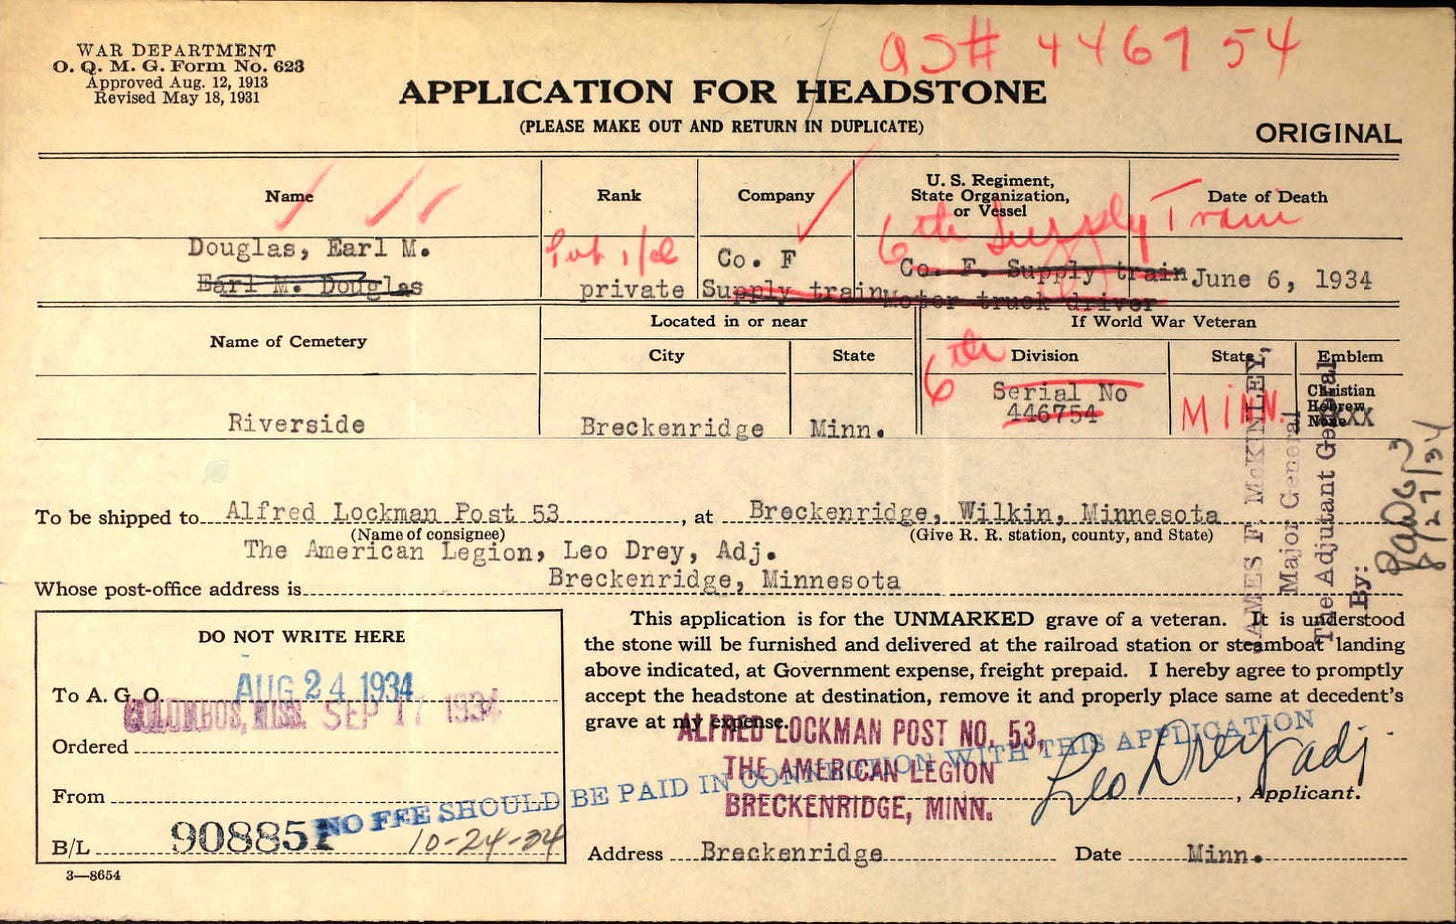 WAR DEPARTMENT
O. Q. M. G. Form No. 623
Approved Aug. 12, 1913
Revised May 18, 1931
# 446754
APPLICATION FOR HEADSTONE
(PLEASE MAKE OUT AND RETURN IN DUPLICATE)
ORIGINAL
Name
Rank
Company
U. S. Regiment,
State Organization,
or Vessel
Date of Death
6th Supply Train
Douglas, Earl M.
Earl M. Douglas
Pvt 1/cl
private
Co. F
Supply train
Co. F. Supply train
Motor truck driver
June 6, 1934
Name of Cemetery
Located in or near
City
State
If World War Veteran
Division
State
Emblem
6th
Serial No
446754
MINN.
Christian
Hebrew
None
XXX
Riverside
Breckenridge
Minn.
JAMES F. McKINLEY,
Major General
The Adjutant General
By:
8/27/34
To be shipped to Alfred Lockman Post 53, at Breckenridge, Wilkin, Minnesota
(Name of consignee)
(Give R. R. station, county, and State)
The American Legion, Leo Drey, Adj.
Whose post-office address is Breckenridge, Minnesota
DO NOT WRITE HERE
To A. G. O. AUG 24 1934
COLUMBUS, MISS. SEP 17 1934
Ordered
From
B/L 908851
10-24-34
3—8654
This application is for the UNMARKED grave of a veteran. It is understood
the stone will be furnished and delivered at the railroad station or steamboat landing
above indicated, at Government expense, freight prepaid. I hereby agree to promptly
accept the headstone at destination, remove it and properly place same at decedent's
grave at my expense.
ALFRED LOCKMAN POST NO. 53,
THE AMERICAN LEGION
BRECKENRIDGE, MINN.
NO FEE SHOULD BE PAID IN CONNECTION WITH THIS APPLICATION
Leo Drey adj.
, Applicant.
Address Breckenridge Date Minn.